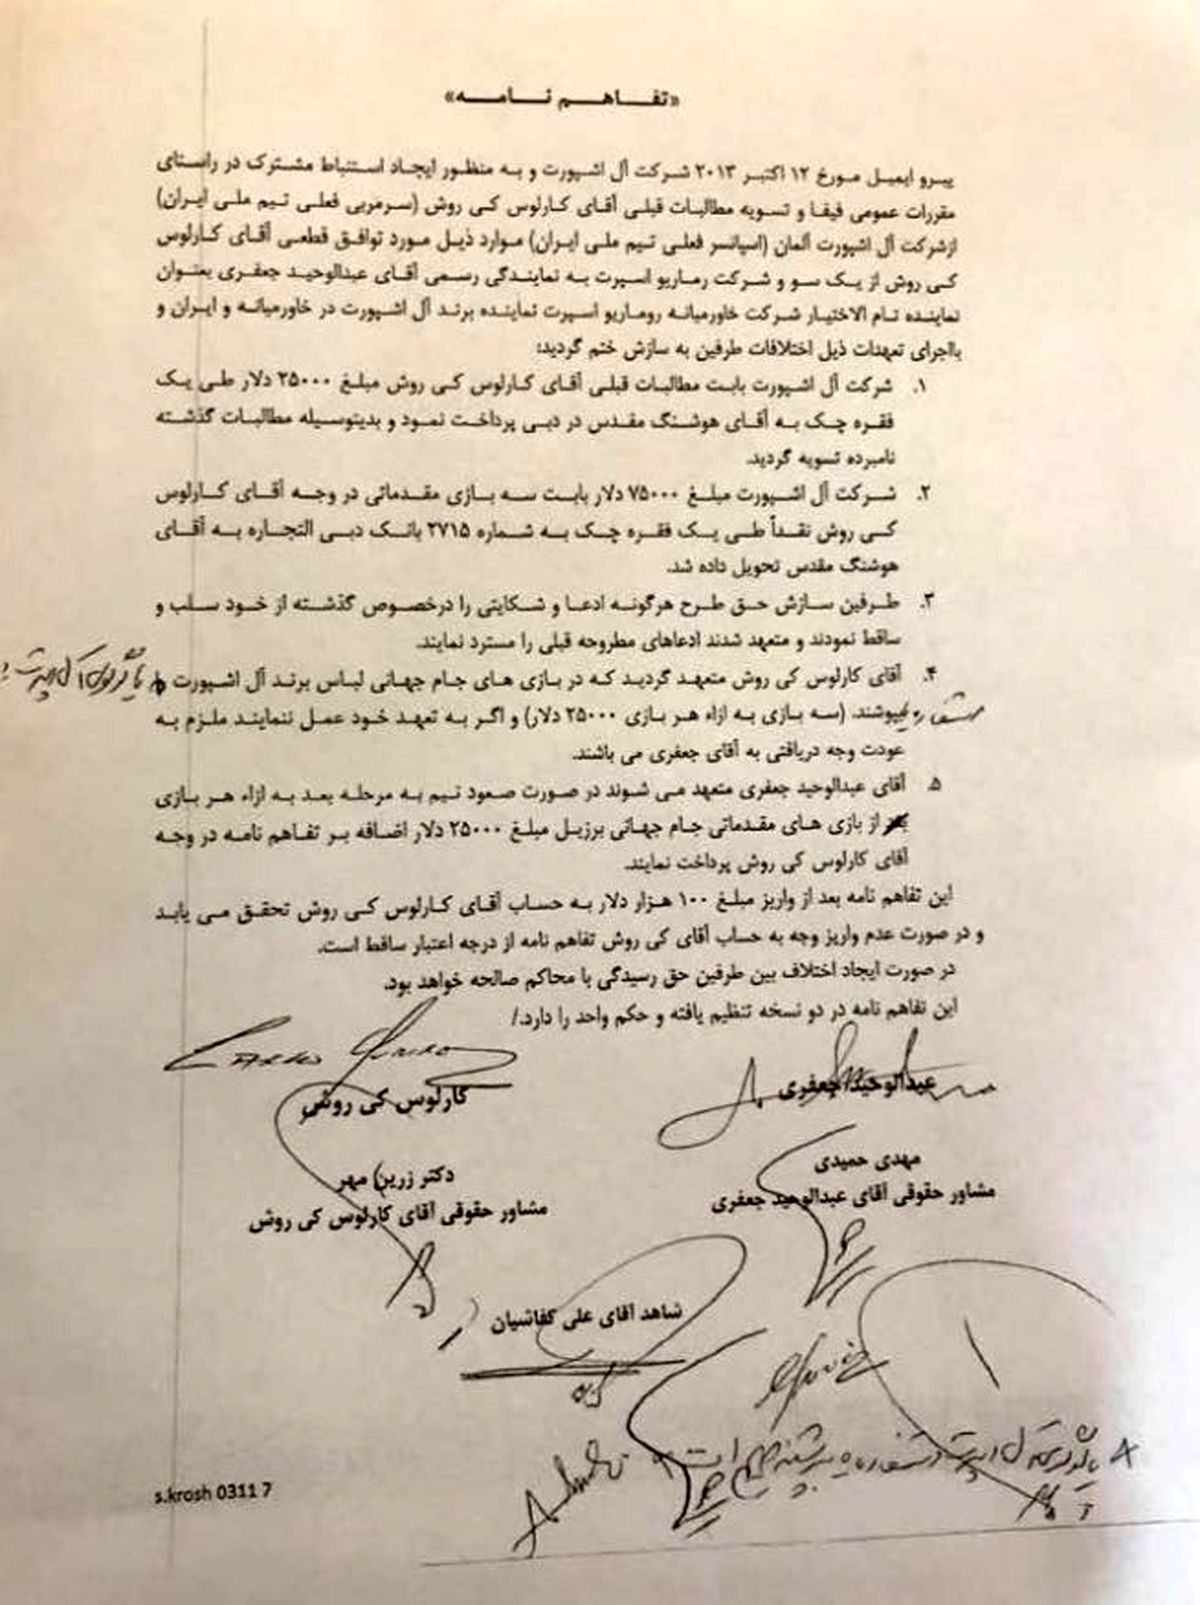 «تفـــاهـــم نـــامـــه»
پیرو ایمیل مورخ ۱۲ اکتبر ۲۰۱۳ شرکت آل اشپورت و به منظور ایجاد استنباط مشترک در راستای
مقررات عمومی فیفا و تسویه مطالبات قبلی آقای کارلوس کی روش (سرمربی فعلی تیم ملی ایران)
ازشرکت آل اشپورت آلمان (اسپانسر فعلی تیم ملی ایران) موارد ذیل مورد توافق قطعی آقای کارلوس
کی روش از یک سو و شرکت رماریو اسپرت به نمایندگی رسمی آقای عبدالوحید جعفری بعنوان
نماینده تام الاختیار شرکت خاورمیانه روماریو اسپرت نماینده برند آل اشپورت در خاورمیانه و ایران و
بااجرای تعهدات ذیل اختلافات طرفین به سازش ختم گردید:
۱. شرکت آل اشپورت بابت مطالبات قبلی آقای کارلوس کی روش مبلغ ۲۵۰۰۰ دلار طی یک
فقره چک به آقای هوشنگ مقدس در دبی پرداخت نمود و بدینوسیله مطالبات گذشته
نامبرده تسویه گردید.
۲. شرکت آل اشپورت مبلغ ۷۵۰۰۰ دلار بابت سه بازی مقدماتی در وجه آقای کارلوس
کی روش نقداً طی یک فقره چک به شماره ۲۷۱۵ بانک دبی التجاره به آقای
هوشنگ مقدس تحویل داده شد.
۳. طرفین سازش حق طرح هرگونه ادعا و شکایتی را درخصوص گذشته از خود سلب و
ساقط نمودند و متعهد شدند ادعاهای مطروحه قبلی را مسترد نمایند.
۴. آقای کارلوس کی روش متعهد گردید که در بازی های جام جهانی لباس برند آل اشپورت
بپوشند. (سه بازی به ازاء هر بازی ۲۵۰۰۰ دلار) و اگر به تعهد خود عمل ننمایند ملزم به
عودت وجه دریافتی به آقای جعفری می باشند.
۵. آقای عبدالوحید جعفری متعهد می شوند در صورت صعود تیم به مرحله بعد به ازاء هر بازی
از بازی های مقدماتی جام جهانی برزیل مبلغ ۲۵۰۰۰ دلار اضافه بر تفاهم نامه در وجه
آقای کارلوس کی روش پرداخت نمایند.
این تفاهم نامه بعد از واریز مبلغ ۱۰۰ هزار دلار به حساب آقای کارلوس کی روش تحقق می یابد
و در صورت عدم واریز وجه به حساب آقای کی روش تفاهم نامه از درجه اعتبار ساقط است.
در صورت ایجاد اختلاف بین طرفین حق رسیدگی با محاکم صالحه خواهد بود.
این تفاهم نامه در دو نسخه تنظیم یافته و حکم واحد را دارد./
عبدالوحید جعفری
کارلوس کی روش
مهدی حمیدی
مشاور حقوقی آقای عبدالوحید جعفری
دکتر زرین مهر
مشاور حقوقی آقای کارلوس کی روش
شاهد آقای علی کفاشیان
s.krosh 0311 7